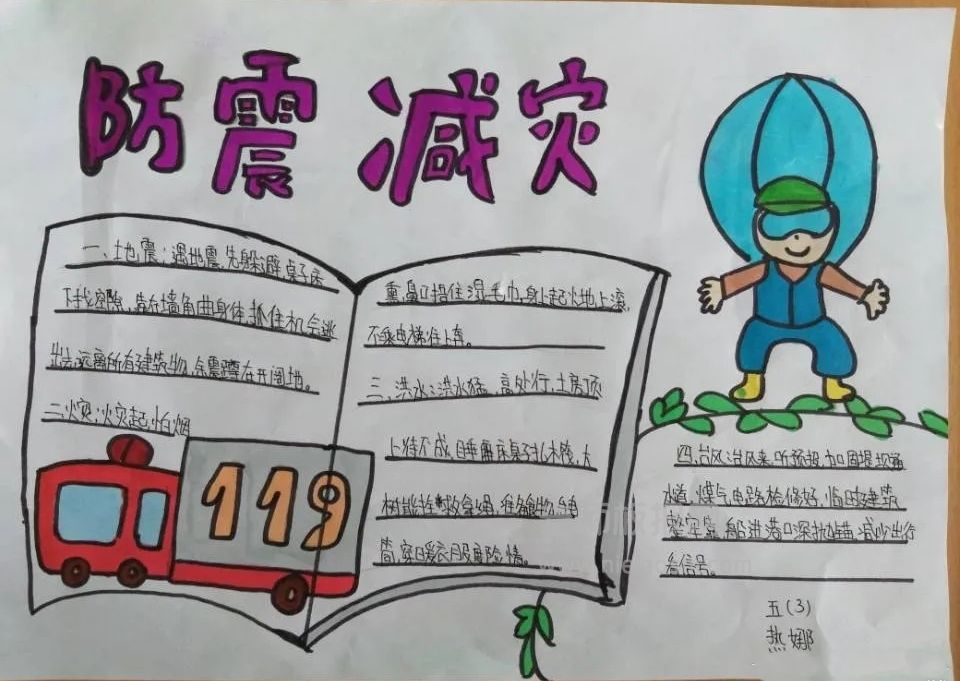 防震减灾
一、土也震：遇地震,先躲避,桌子床
下找空隙,靠在墙角曲身体,抓住机会逃
出去,远离所有建筑物,余震蹲在开阔地。
二、火灾：火灾起,怕烟
重,鼻口捂住湿毛巾,身上起火地上滚,
不乘电梯往上奔。
三、洪水：洪水猛,高处行,土房顶
上待不成,睡床桌子扎木筏,大
树能拴救命绳,准备食物
筒,穿暖衣服度险情。
119
四、台风：台风来,听预报,加固堤坝通
水道,煤气电路检修好,临时建筑
整牢靠,船进港口深抛锚,减少出行
看信号。
五(3)
热娜